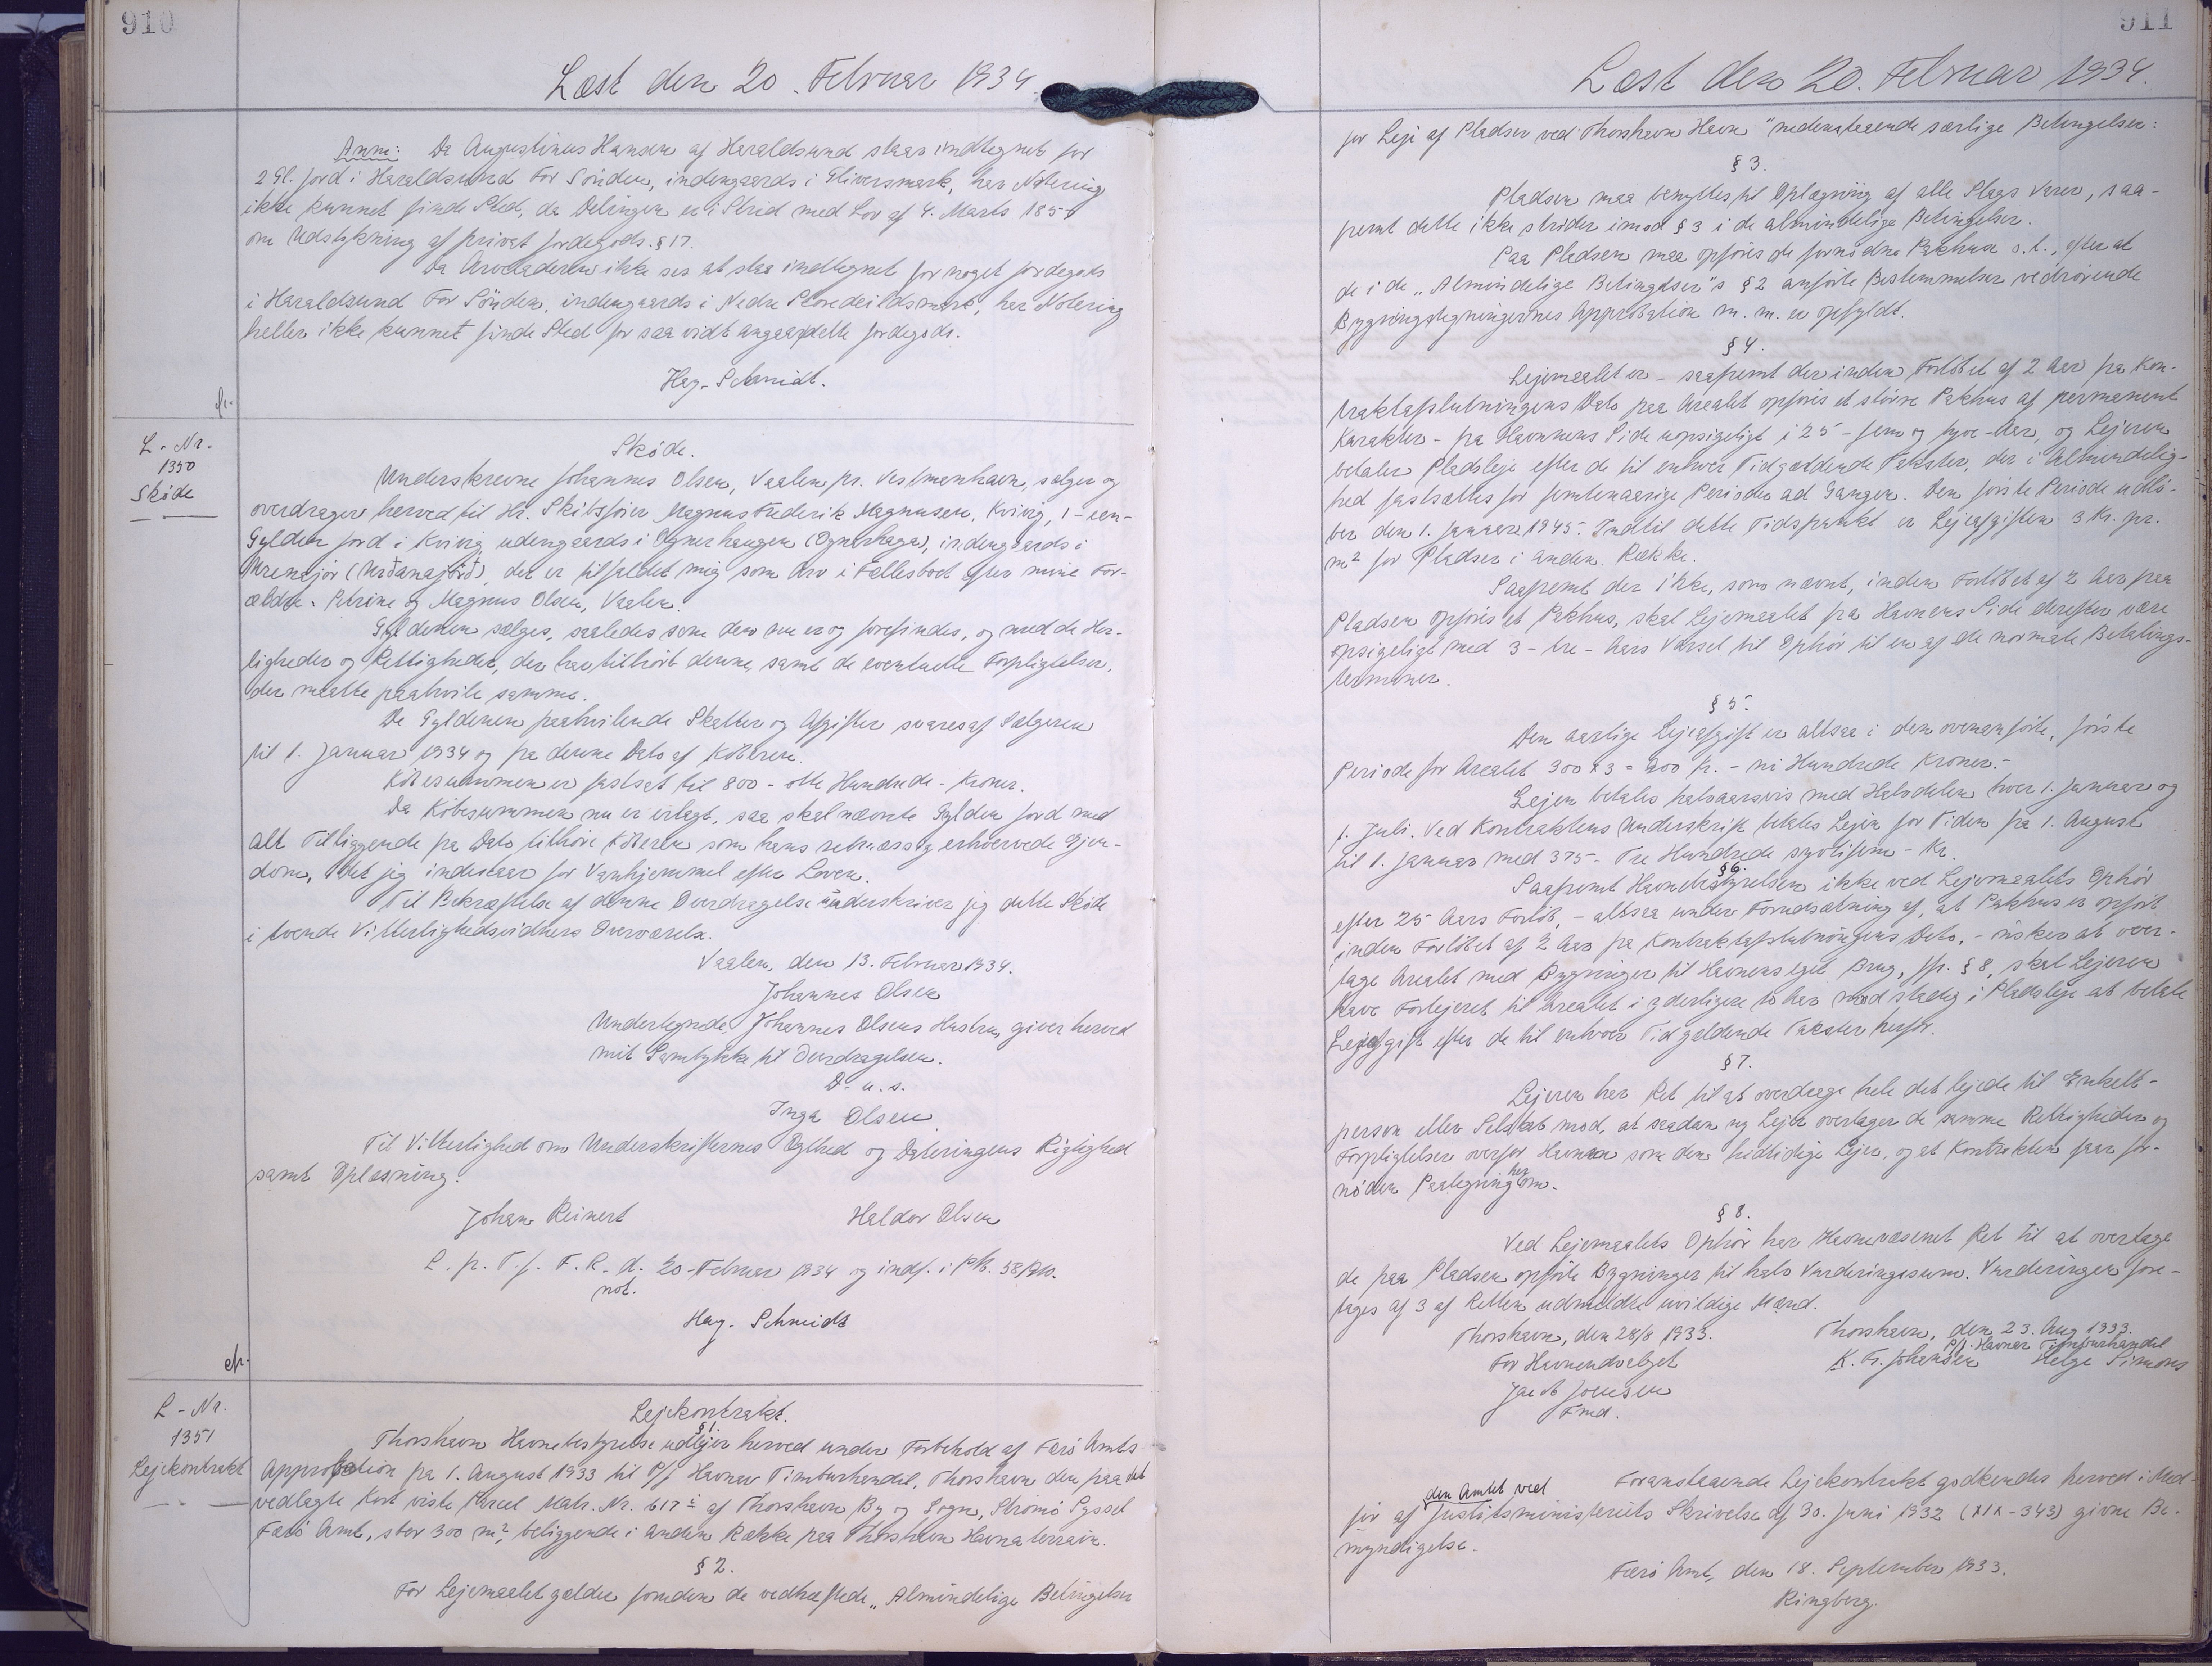 910
Læst den 20. Februar 1934.
Anm: Da Augustinus Hansen af Haraldsund staar indtegnet for
2 Gl. Jord i Haraldsund For Sönden, indengaards i Fliversmark, har Notering
ikke kunnet finde Sted, da Delingen er i Strid med Lov af 4. Marts 185
om Udstykning af privat Jordegods. § 17.
Da Arveladeren ikke ses at staa indtegnet for noget Jordegods
i Haraldsund For Sönden, indengaards i Nedre mark, har Notering
heller ikke kunnet finde Sted for saa vidt angaar dette Jordegods.
Hag. Schmidt.
L-Nr.
1350
Sköde
Sköde.
Underskrevne Johannes Olsen, Vaalen pr. Vestmanhavn, sælger og
overdrager herved til Hr. Skibsförer Magnus Frederik Magnusen, Kvivig, 1-een-
Gylden Jord i Kvivig udengaards i Ognerhaugen (Ognershaga), indengaards i
(Urðamajörð), der er tilfaldet mig som Arv i Fællesboet efter mine For-
ældre. Petrine og Magnus Olsen, Vaalen.
Gyldenen sælges, saaledes som den nu er og forefindes, og med de Her-
ligheder og Rettigheder, der har tilhört denne, samt de eventuelle Forpligtelser,
der maatte paahvile samme.
De Gyldenen paahvilende Skatter og Afgifter svares af Sælgeren
til 1. Januar 1934 og fra denne Dato af Köberen.
Köbesummen er fastsat til 800 - otte Hundrede - Kroner.
Da Köbesummen nu er erlagt, saa skal nævnte Gylden Jord med
alt Tilliggende fra Dato tilhöre Köberen som hans retmæssig erhvervede Ejen-
dom, idet jeg indestaar for Vanhjemmel efter Loven.
Til Bekræftelse af denne Overdragelse underskriver jeg dette Sköde
i tvende Vitterlighedsvidners Overværelse.
Vaalen, den 13. Februar 1934.
Johannes Olsen
Undertegnede Johannes Olsens Hustru, giver herved
mit Samtykke til Overdragelsen.
D. u. s.
Inga Olsen
Til Vitterlighed om Underskrifternes Ægthed og Dateringens Rigtighed
samt Oplæsning:
Johan Reinert Haldor Olsen
L. p. T. f. F. R. d. 20. Februar 1934 og indf. i Pb. 58
not.
Hag. Schmidt
L-Nr.
1351
Lejekontrakt
Lejekontrakt.
§ 1.
Thorshavn Havnebestyrelse udlejer herved under Forbehold af Færö Amts
Approbation fra 1. August 1933 til P/f Havnar Timburhandil, Thorshavn den paa det
vedlagte Kort viste Parcel Matr. Nr. 617 i af Thorshavn By og Sogn, Strömö Syssel
Færö Amt, stor 300 m², beliggende i anden Række paa Thorshavn Havneterrain.
§ 2.
For Lejemaalet gælder foruden de vedhæftede „Almindelige Betingelser
911
Læst den 20. Februar 1934.
for Leje af Pladser ved Thorshavn Havn" nedenstaaende særlige Betingelser:
§ 3.
Pladsen maa benyttes til Oplægning af alle Slags Varer, saa-
fremt dette ikke strider imod § 3 i de almindelige Betingelser.
Paa Pladsen maa opföres de fornödne Pakhuse o. l., efter at
de i de „Almindelige Betingelser"s § 2 anförte Bestemmelser vedrörende
Bygningstegningernes Approbation m. m. er opfyldt.
§ 4.
Lejemaalet er - saafremt der inden Forlöbet af 2 Aar fra Kon-
traktafslutningens Dato paa Arealet opföres et större Pakhus af permanent
Karakter - fra Havnens Side uopsigeligt i 25 - fem og tyve - Aar, og Lejeren
betaler Pladsleje efter de til enhver Tid gældende Takster, der i Almindelig-
hed fastsættes for femtenaarige Perioder ad Gangen. Den förste Periode udlö-
ber den 1. Januar 1945. Indtil dette Tidspunkt er Lejeafgiften 3 Kr. pr.
m² for Pladser i anden Række.
Saafremt der ikke, som nævnt, inden Forlöbet af 2 Aar paa
Pladsen opföres et Pakhus, skal Lejemaalet fra Havnens Side derefter være
opsigeligt med 3 - tre - Aars Varsel til Ophör til en af de normale Betalings-
terminer.
§ 5.
Den aarlige Lejeafgift er altsaa i den ovenanförte, förste
Periode for Arealet 300 x 3 = 900 Kr. - ni Hundrede Kroner.-
Lejen betales halvaarsvis med Halvdelen hver 1. Januar og
1. Juli. Ved Kontraktens Underskrift betales Lejen for Tiden fra 1. August
til 1. Januar med 375 - Tre Hundrede syvtifem - Kr.
§ 6.
Saafremt Havnebestyrelsen ikke ved Lejemaalets Ophör
efter 25 Aars Forlöb, - altsaa under Forudsætning af, at Pakhus er opfört
inden Forlöbet af 2 Aar fra Kontraktafslutningens Dato, - önsker at over-
tage Arealet med Bygninger til Havnens eget Brug, jfr. § 8, skal Lejeren
have Forlejeret til Arealet i yderligere 10 Aar mod stadig i Pladsleje at betale
Lejeafgift efter de til enhver Tid gældende Takster herfor.
§ 7.
Lejeren har Ret til at overdrage hele det lejede til Enkelt-
person eller Selskab mod, at saadan ny Lejer overtager de samme Rettigheder og
Forpligtelser overfor Havnen som den hidtidige Lejer, og at Kontrakten faar for-
nöden Paategning herom.
§ 8.
Ved Lejemaalets Ophör har Havnevæsenet Ret til at overtage
de paa Pladsen opförte Bygninger til halv Vurderingssum. Vurderingen fore-
tages af 3 af Retten udmeldte uvildige Mænd.
Thorshavn, den 28/8 1933. Thorshavn, den 23. Aug 1933.
For Havneudvalget P/f. Havnar Timburhandil
Jacob Joensen K. Fr. Johansen Helge Simons
Fmd.
Foranstaaende Lejekontrakt godkendes herved i Med-
för af den Amtet ved Justitsministeriets Skrivelse af 30. Juni 1932 (XIX-343) givne Be-
myndigelse.
Færö Amt, den 18. September 1933.
Ringberg.